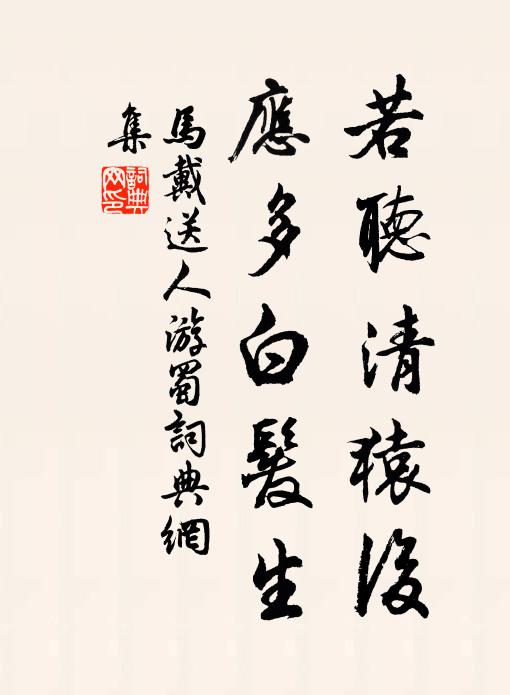 若聽清猿後
應多白髮生
馬戴送人游蜀詞典網
集
詞典
网印